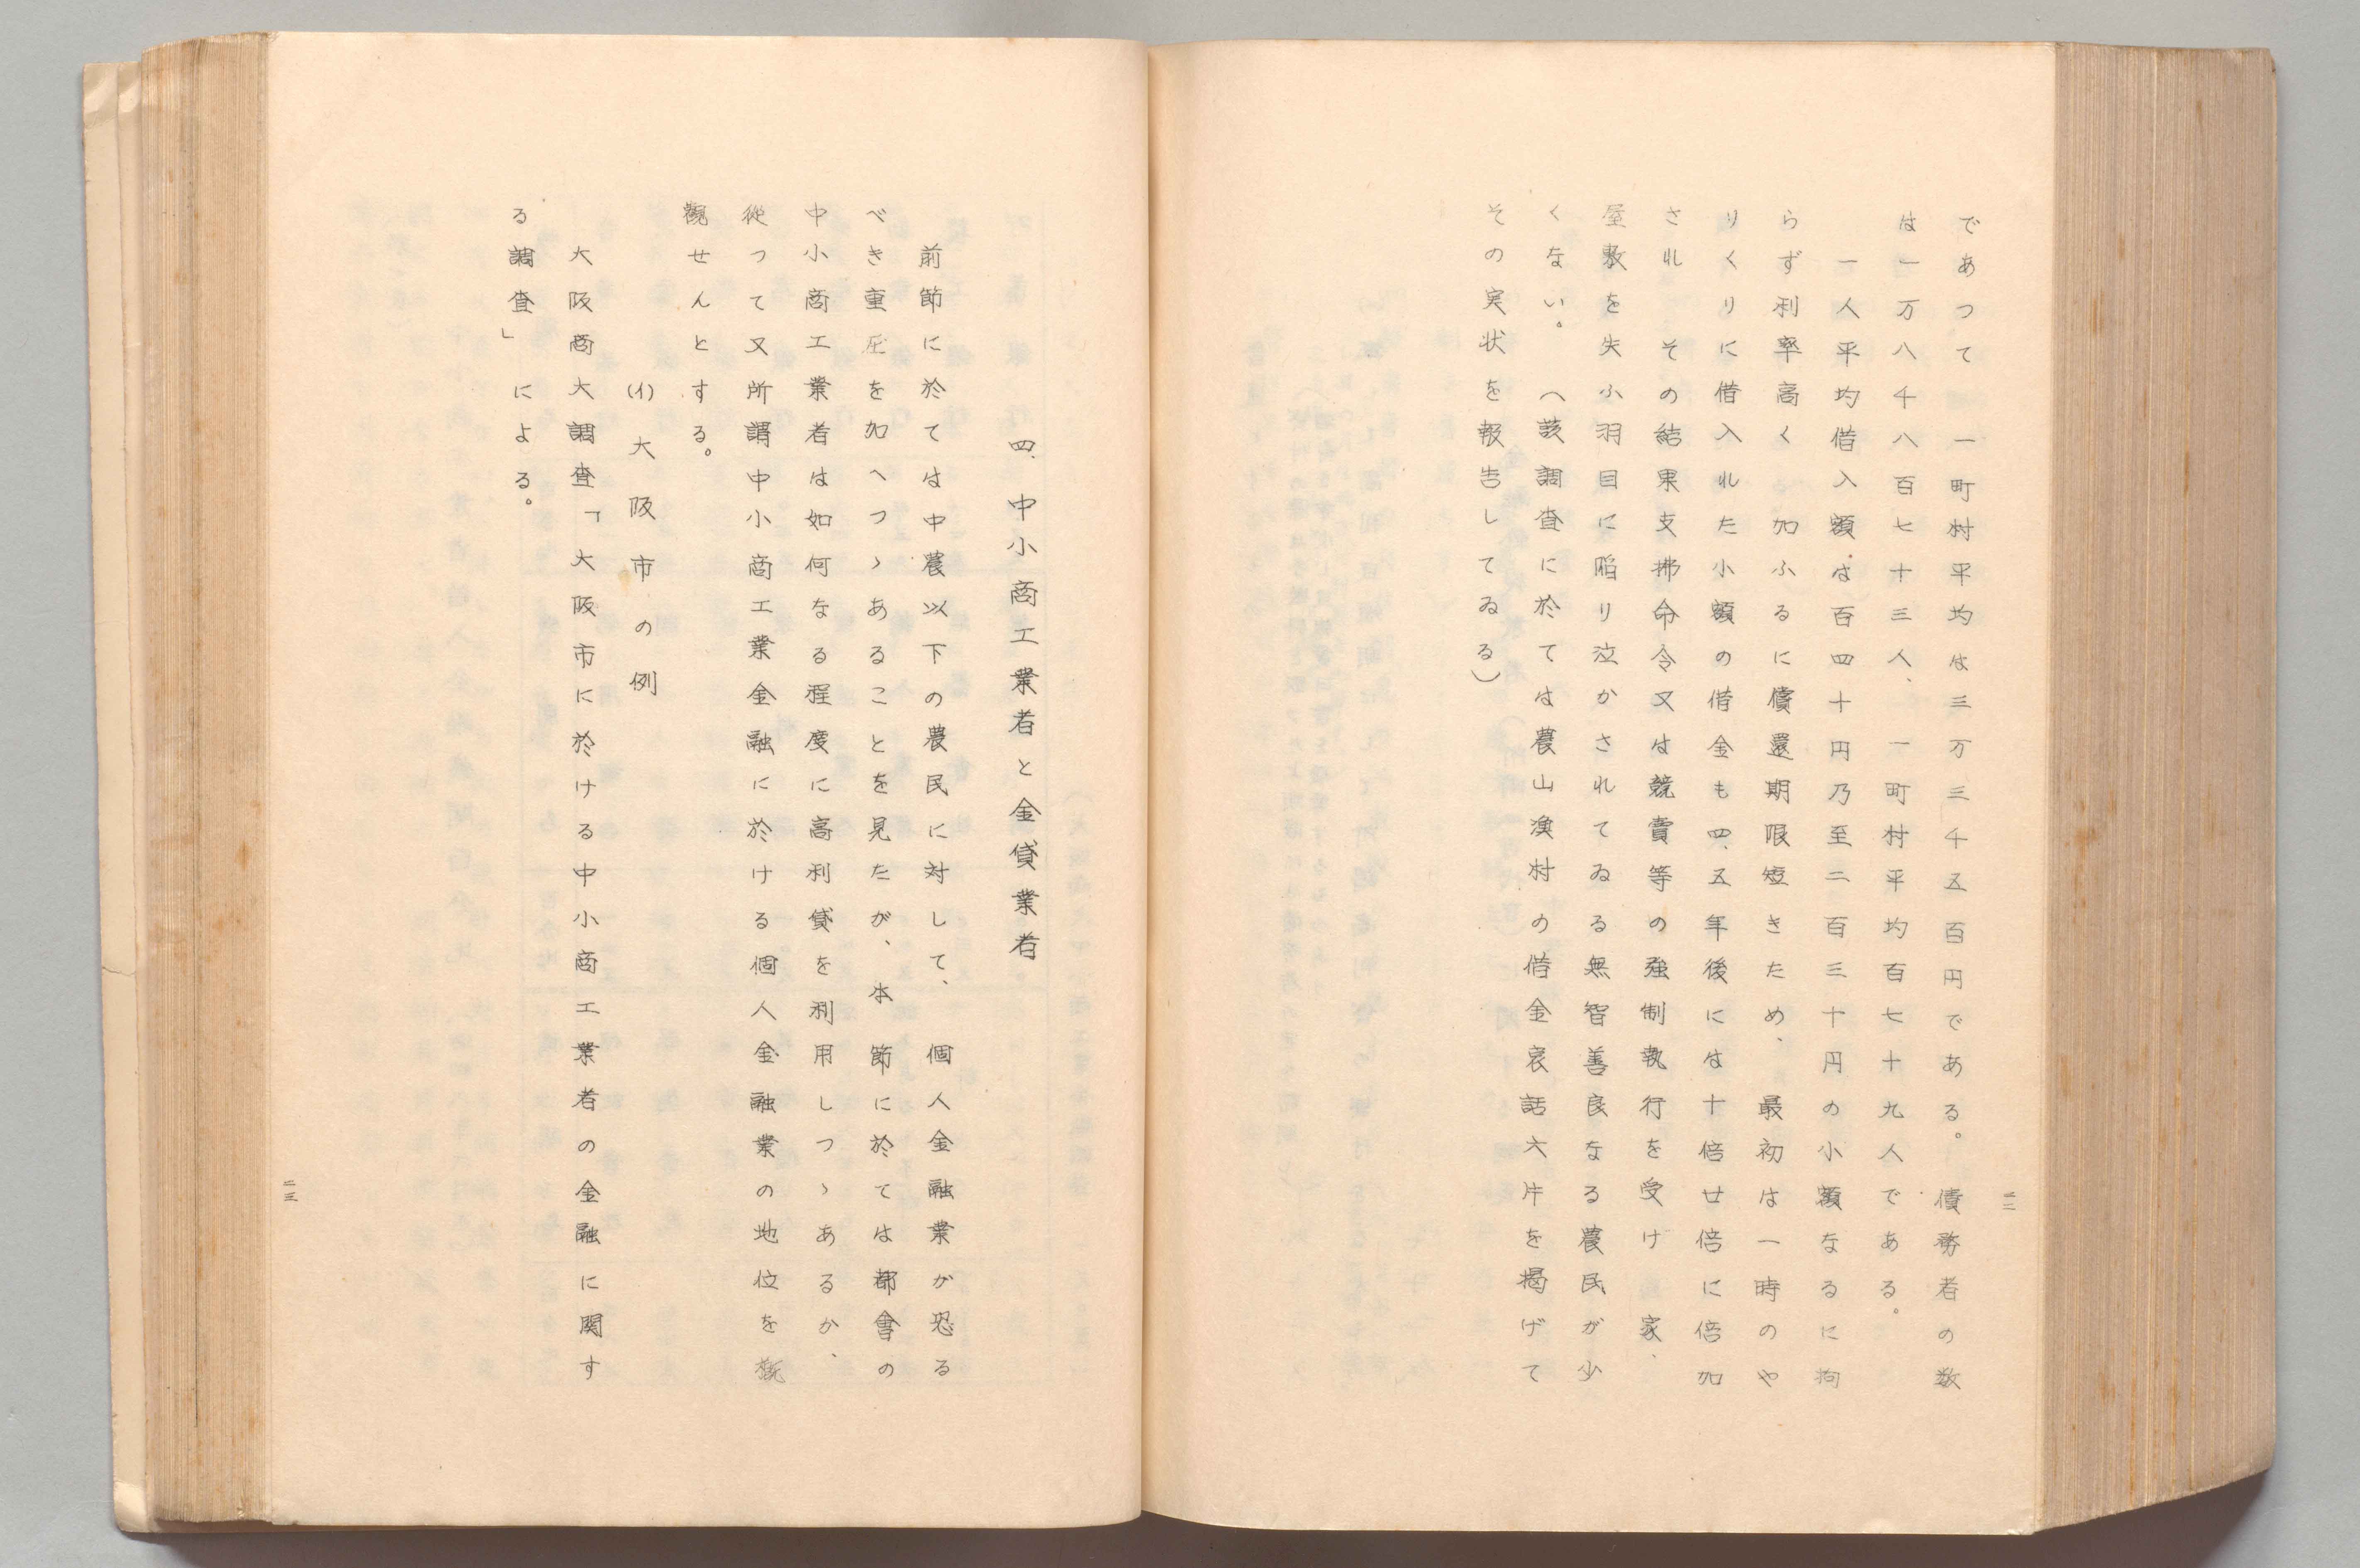 二二
であつて 一町村平均は三万三千五百円である。債務者の数
は一万八千八百七十三人、一町村平均百七十九人である。
一人平均借入額は百四十円乃至二百三十円の小額なるに拘
らず利率高く加ふるに償還期限短きため、最初は一時のや
りくりに借入れた小額の借金も四、五年後には十倍廿倍に倍加
され その結果支拂命令又は競賣等の強制執行を受け 家、
屋敷を失ふ羽目に陥り泣かされてゐる無智善良なる農民が少
くない。(該調査に於ては農山漁村の借金哀話六片を掲げて
その実状を報告してゐる)
四、中小商工業者と金貸業者
前節に於ては中農以下の農民に対して、個人金融業が恐る
べき重圧を加へつゝあることを見たが、本節に於ては都會の
中小商工業者は如何なる程度に高利貸を利用しつゝあるか、
從つて又所謂中小商工業金融に於ける個人金融業の地位を概
観せんとする。
(イ)大阪市の例
大阪商大調査「大阪市に於ける中小商工業者の金融に関す
る調査」による。
二三